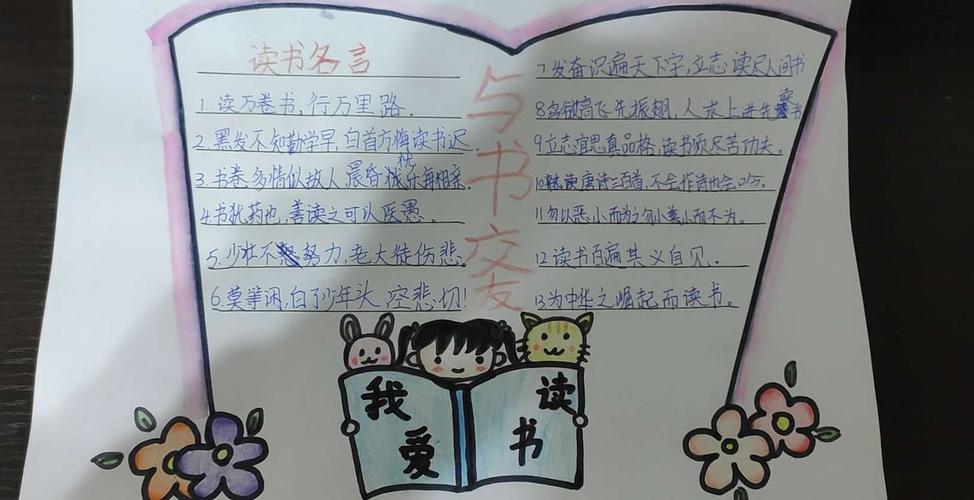 读书名言
1.读万卷书,行万里路.
2.黑发不知勤学早,白首方悔读书迟.
3.书卷多情似故人,晨昏忧乐每相亲.
4.书犹药也,善读之可以医愚。
5.少壮不努力,老大徒伤悲.
6.莫等闲,白了少年头,空悲切!
与书交友
7.发奋识遍天下字,立志读尽人间书
8鸟欲高飞先振翅,人求上进先读书
9立志宜思真品格,读书须尽苦功夫.
10.熟读唐诗三百首,不会作诗也会吟.
11勿以恶小而为之勿以善小而不为。
12读书百遍其义自见。
13为中华之崛起而读书。
我爱
读书